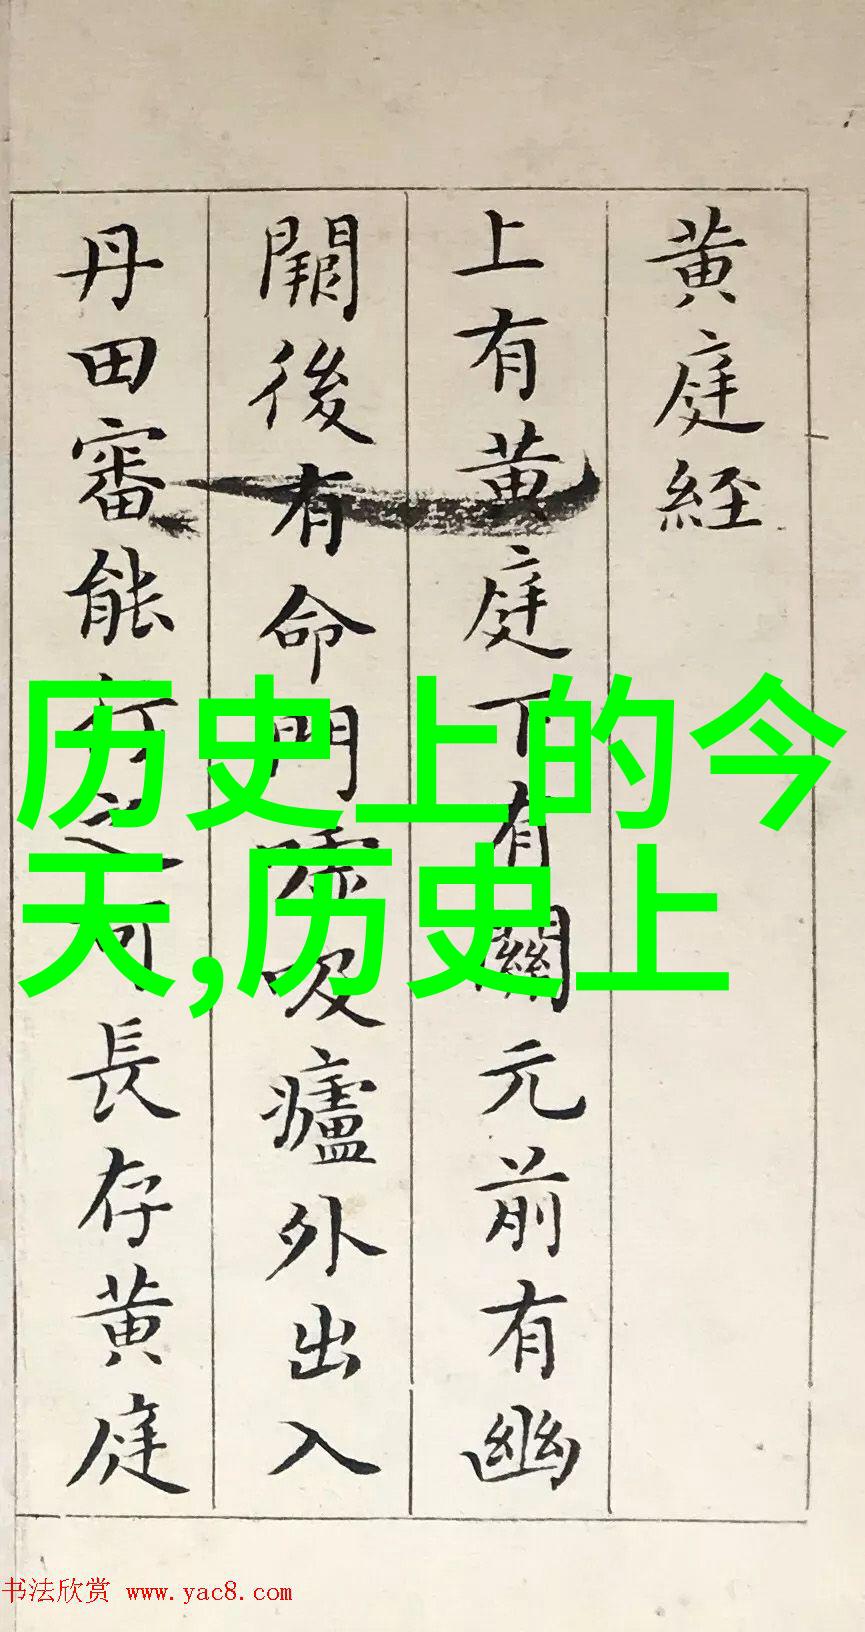 黄庭経
上有黄庭下有關元前有幽
闕後有命門嘘吸廬外出入
丹田審能行之可長存黄庭
历史上的今
天,历史上
书法欣赏 www.yac8.com